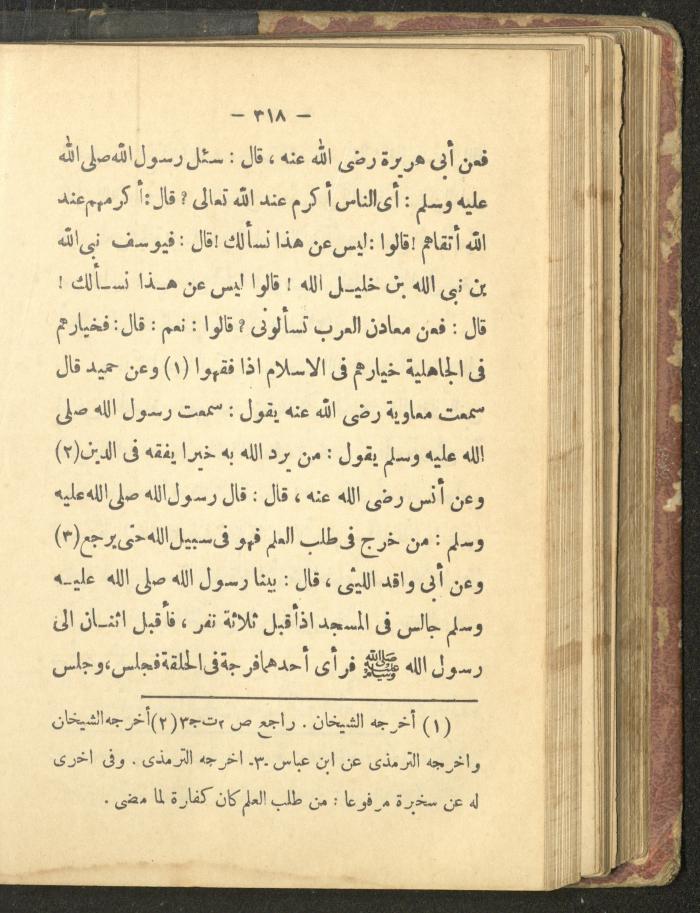 — ٣١٨ —
فعن أبى هريرة رضى الله عنه ، قال : سئل رسول الله صلى الله
عليه وسلم : أى الناس أكرم عند الله تعالى ? قال : أكرمهم عند
الله أتقاهم ! قالوا : ليس عن هذا نسألك ! قال : فيوسف نبى الله
بن نبى الله بن خليـل الله ! قالوا ليس عن هـذا نسـألك !
قال : فعن معادن العرب تسألونى ? قالوا : نعم : قال : فخيارهم
فى الجاهلية خيارهم فى الاسلام اذا فقهوا (١) وعن حميد قال
سمعت معاوية رضى الله عنه يقول : سمعت رسول الله صلى
الله عليه وسلم يقول : من يرد الله به خيرا يفقه فى الدين (٢)
وعن أنس رضى الله عنه ، قال : قال رسول الله صلى الله عليه
وسلم : من خرج فى طلب العلم فهو فى سبيل الله حتى يرجع (٣)
وعن أبى واقد الليثى ، قال : بينا رسول الله صلى الله عليـه
وسلم جالس فى المسجد اذ أقبل ثلاثة نفر ، فأقبل اثنـان الى
رسول الله ﷺ فرأى أحدهما فرجة فى الحلقة فجلس ، وجلس
(١) أخرجه الشيخان . راجع ص ٢ت ج٣ (٢) أخرجه الشيخان
واخرجه الترمذى عن ابن عباس ـ٣ـ اخرجه الترمذى . وفى اخرى
له عن سخبرة مرفوعا : من طلب العلم كان كفارة لما مضى .